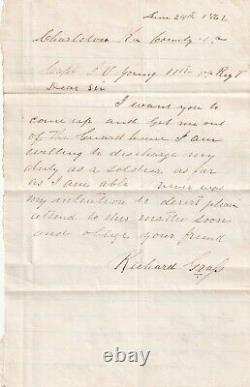 24th 1861
Charleston Va
Capt J V Young 11th Va Regt
Dear Sir
I want you to
come up and get me out
of the Guard house I am
willing to discharge my
duty as a soldier as far
as I am able never was
my intention to desert pleas
attend to this matter soon
and oblige your friend
Richard Grass